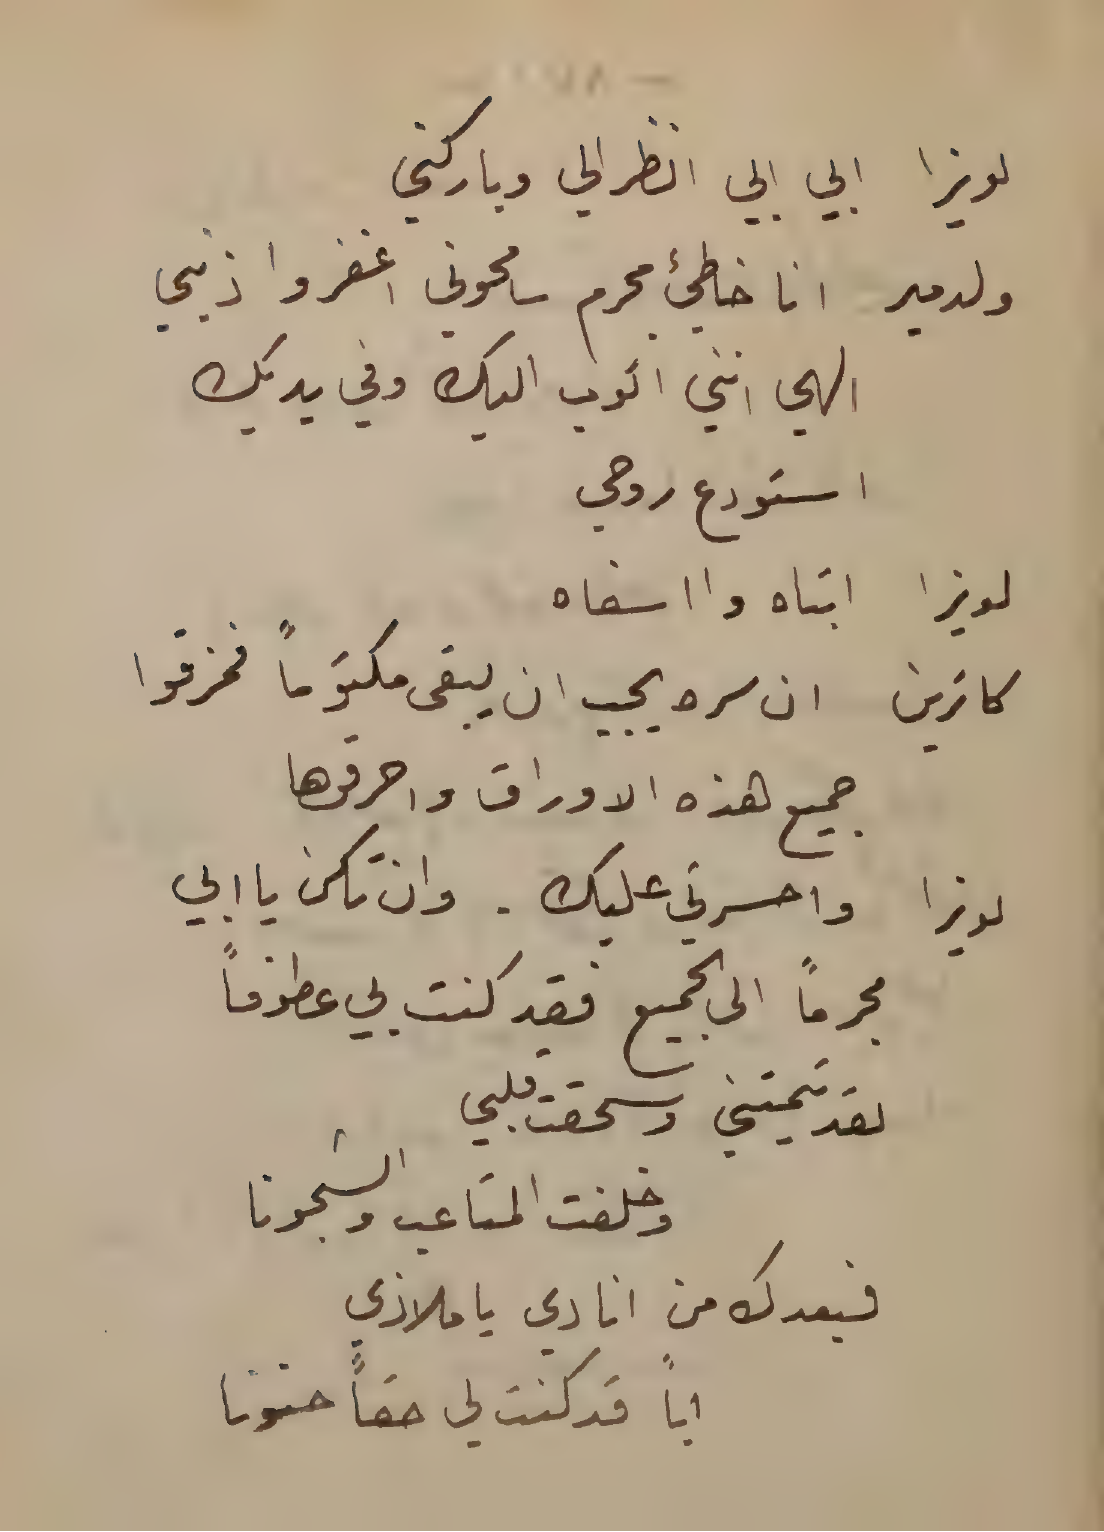 لويزا ابي ابي انظر الي وباركني
ولدمير انا خاطئ مجرم سامحوني اغفروا ذنبي
الهي انني اتوب اليك وفي يديك
استودع روحي
لويزا ابتاه وا اسفاه
كاترين ان سره يجب ان يبقى مكتوماً فمزقوا
جميع هذه الاوراق واحرقوها
لويزا واحسرتي عليك . وان تكن يا ابي
مجرماً الى الجميع فقد كنت بي عطوفاً
لقد يتمتني وسحقت قلبي
وخلفت المتاعب والشجونا
فبعدك من انادي يا ملاذي
اباً قد كنت لي حقاً حنونا